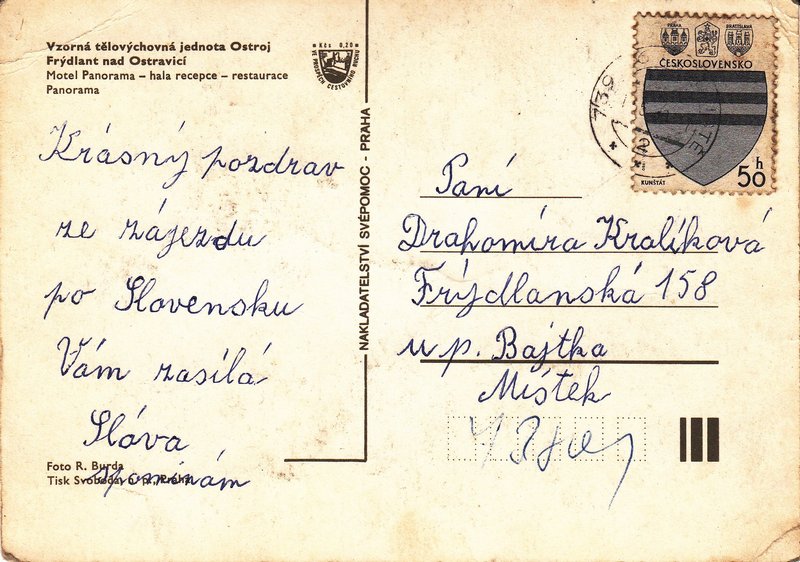 Vzorná tělovýchovná jednota Ostroj
Frýdlant nad Ostravicí
Motel Panorama – hala recepce – restaurace
Panorama
Kčs 0,20
VE PROSPĚCH CESTOVNÍHO RUCHU
Krásný pozdrav
ze zájezdu
po Slovensku
Vám zasílá
Sláva
vzpomínám
Foto R. Burda
Tisk Svoboda, n. p., Praha
NAKLADATELSTVÍ SVÉPOMOC - PRAHA
PRAHA
BRATISLAVA
ČESKOSLOVENSKO
KUNŠTÁT
50 h
739
Paní
Drahomíra Kralíková
Frýdlanská 158
u p. Bajtka
Místek